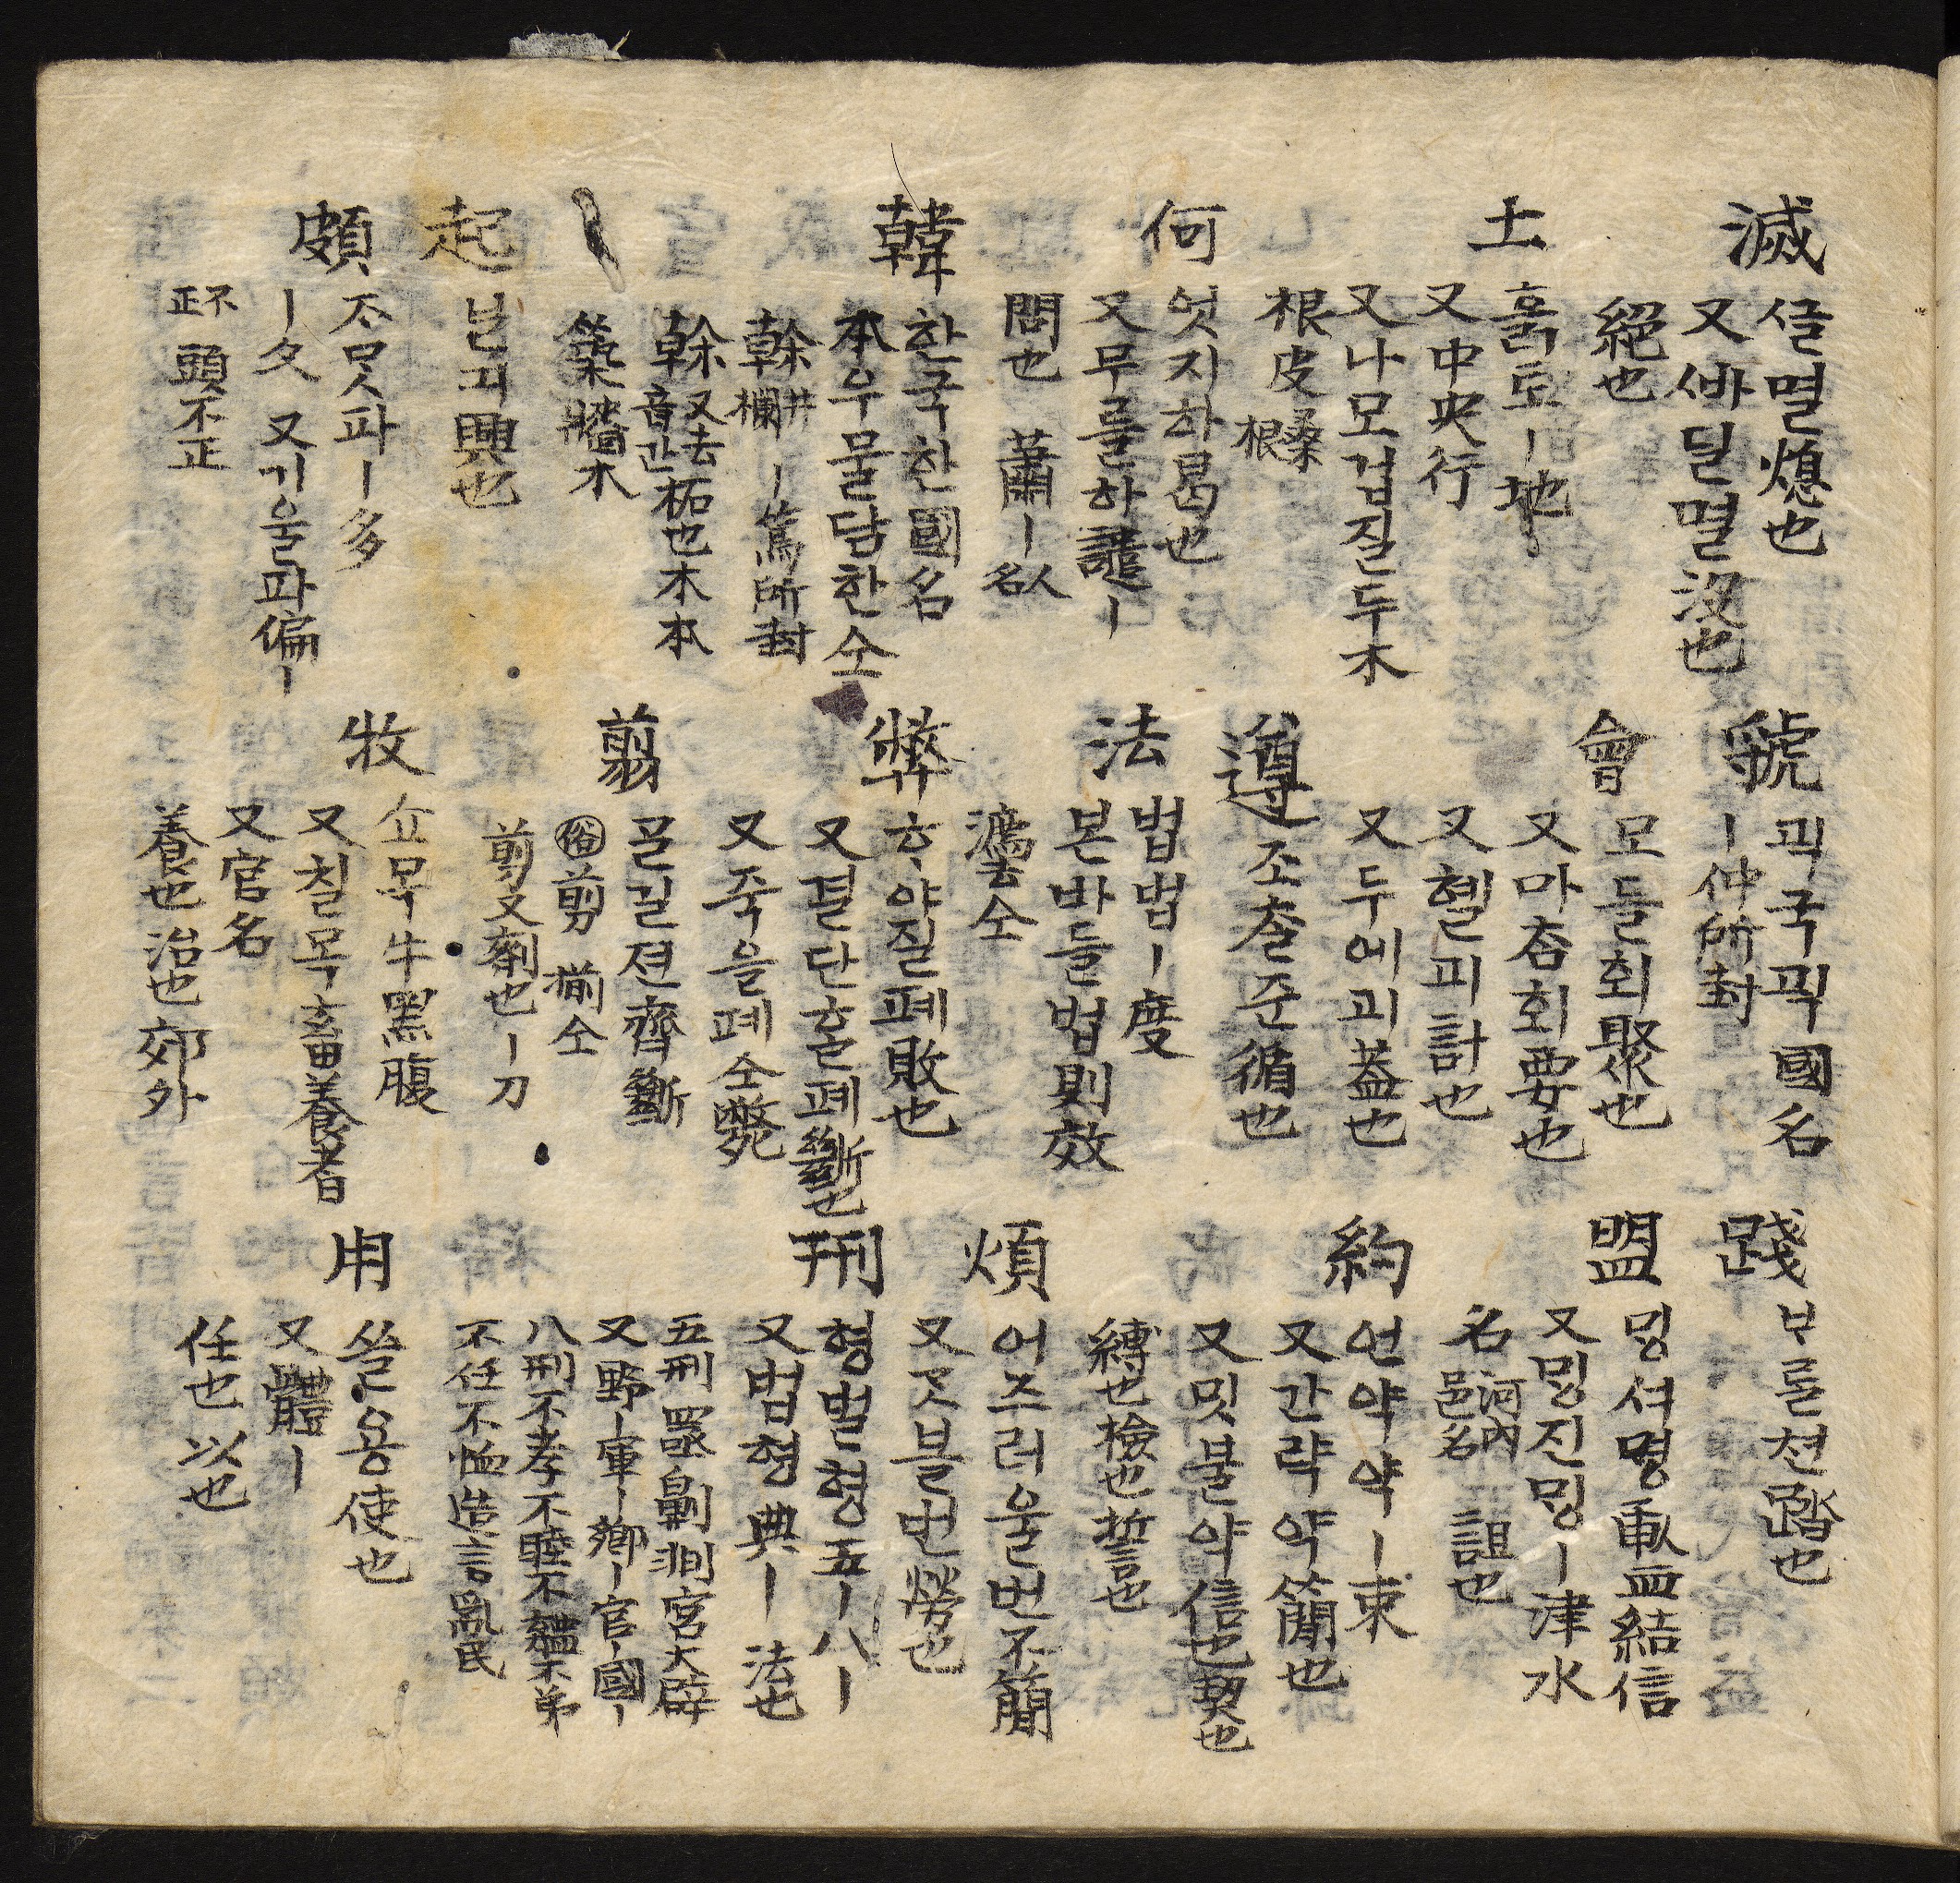 滅
ᄭᅳᆯ멸熄也
又ᄲᅡ딜멸沒也
絕也
虢
괵국괵國名
ー仲所封
踐
ᄇᆞ룰쳔踏也
土
흙토ー地
又中央行
又나모겁질두木
根皮 桑根
會
모들회聚也
又마촘회要也
又혤괴計也
又두에괴蓋也
盟
ᄆᆡᆼ셔ᄆᆡᆼ歃血結信
又ᄆᆡᆼ진ᄆᆡᆼー津水
名 河內邑名 詛也
何
엇지하曷也
又무를하譴ー
問也 蕭ー人名
遵
조츨준循也
約
언약약ー束
又간략약簡也
又밋불약信也契也
縛也檢也誓言也
法
법법ー度
본바들법則效
灋古仝
韓
한국한國名
本우물담한仝
榦井欄ー萬所封
榦又去音간柘也木本
築墻木
弊
ᄒᆡ야질폐敗也
又결단ᄒᆞᆯ폐斷也
又죽을폐仝斃
煩
어즈러울번不簡
又ᄀᆞᆺ블번勞也
刑
형벌형五ー八ー
又법형典ー 法也
五刑墨劓剕宮大辟
又野ー軍ー鄕ー官ー國ー
八刑不孝不睦不婣不弟
不任不恤造言亂民
起
닐긔興也
翦
ᄀᆞᆯ길젼齊斷
俗剪 揃仝
剪又剃也ー刀
頗
ᄌᆞ못파ー多
ー久 又기울파偏ー
不正 頭不正
牧
쇼목牛黑腹
又칠목畜養者
又官名
養也治也郊外
用
ᄡᅳᆯ용使也
又體ー
任也以也